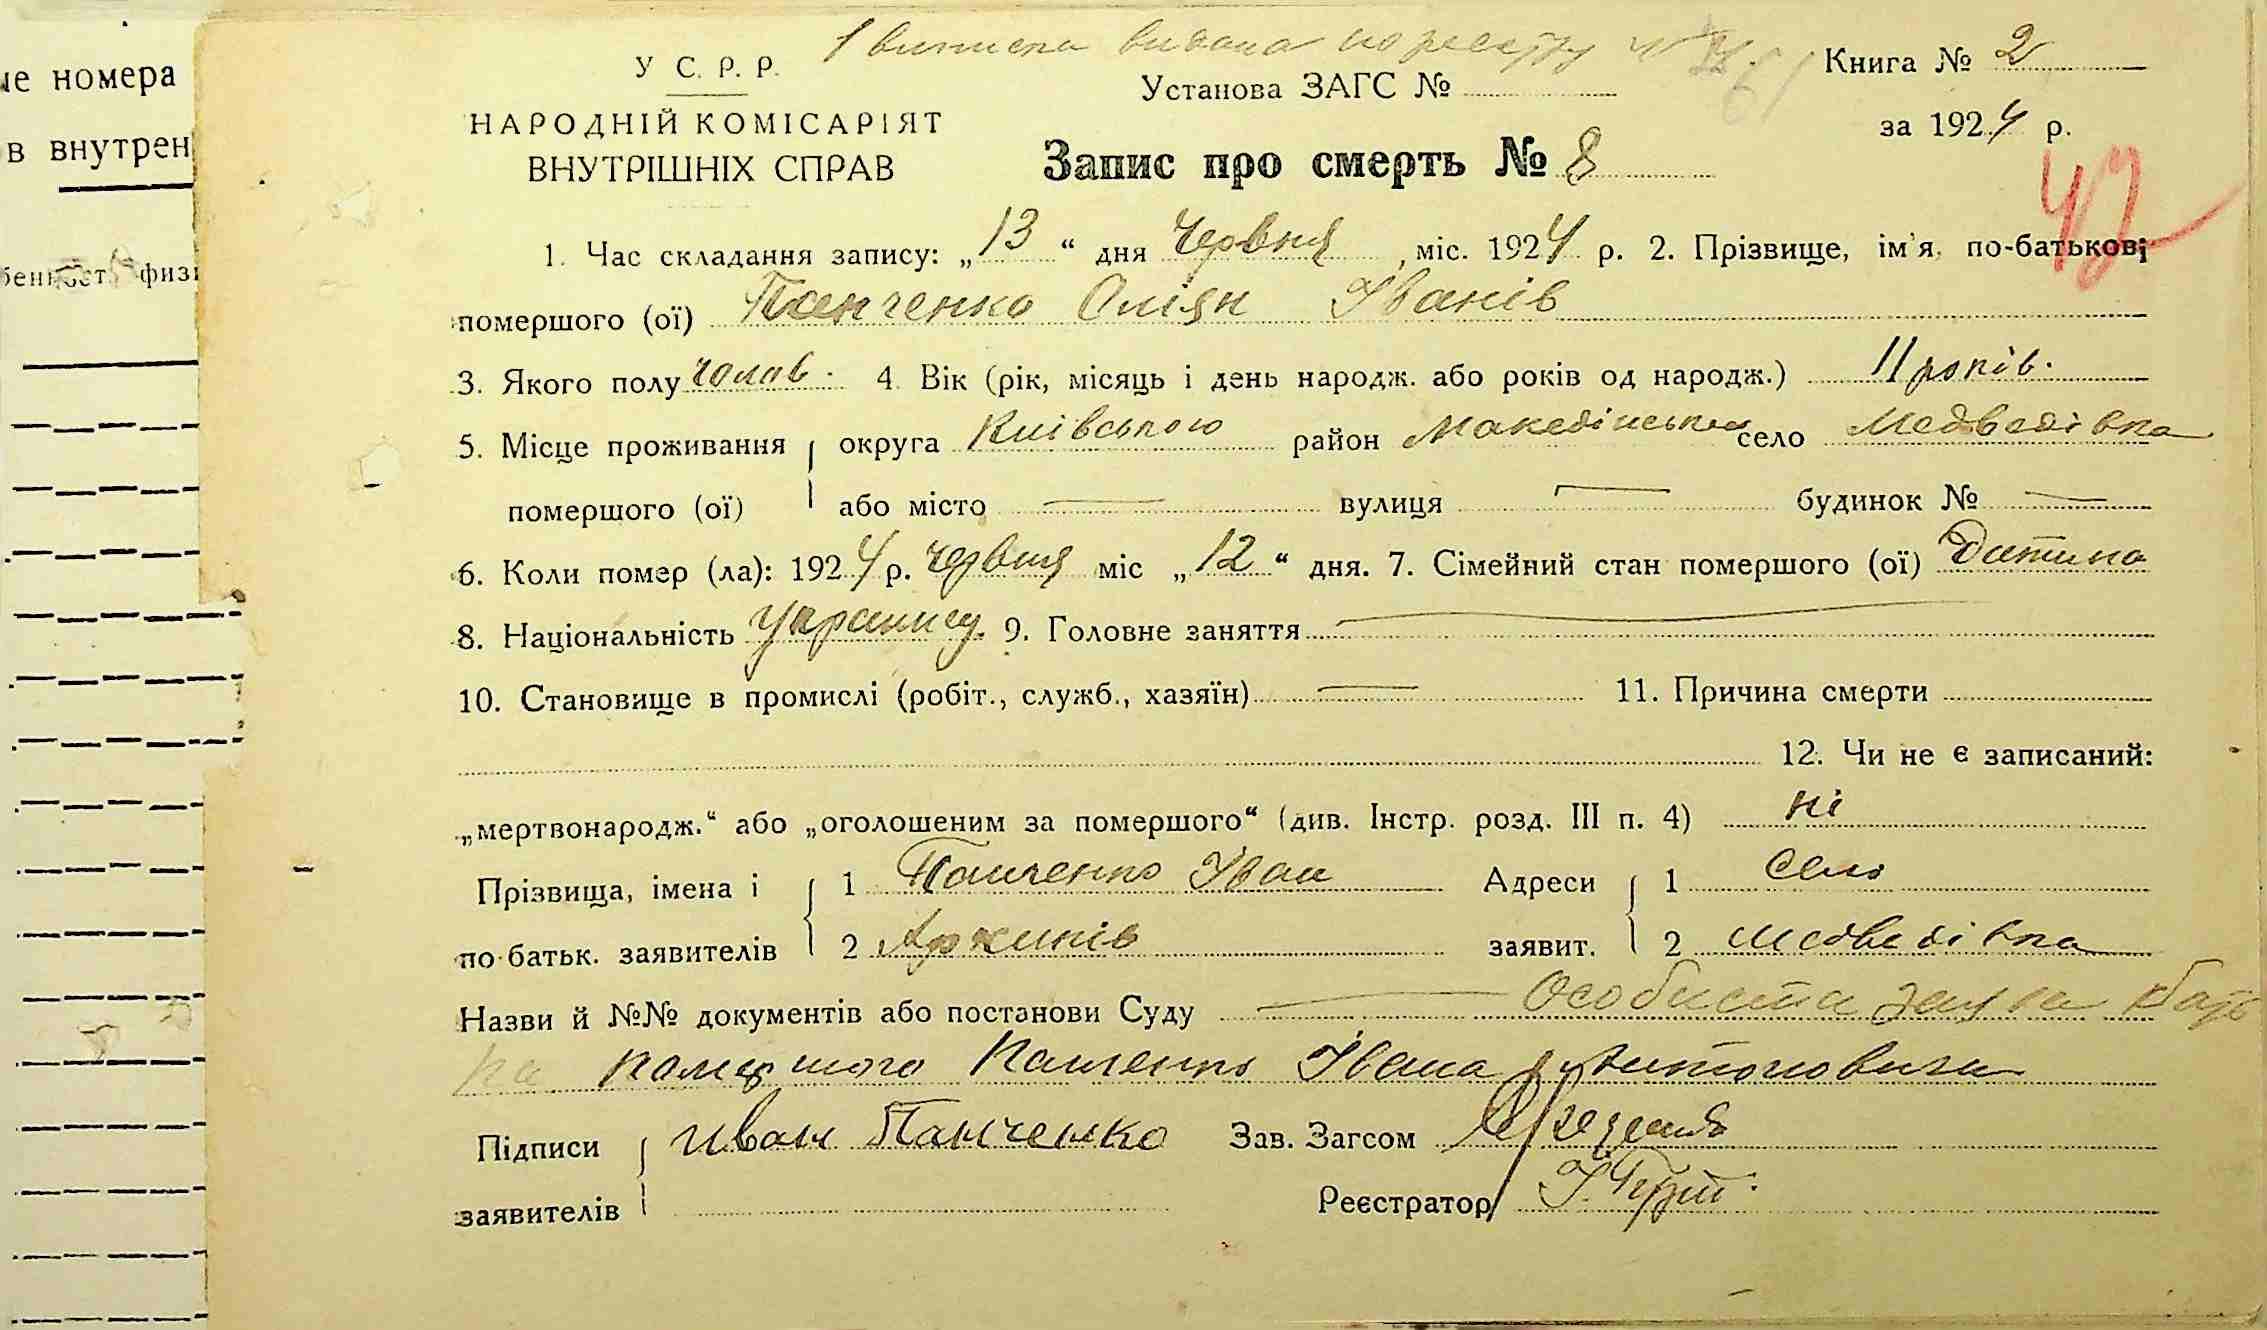 не номера
в внутрен
физи
1 виписка видана по реєстру №
У С. Р. Р.
Установа ЗАГС №
Книга № 2
НАРОДНІЙ КОМІСАРІЯТ
ВНУТРІШНІХ СПРАВ
за 1924 р.
Запис про смерть № 8
42
1. Час складання запису: „13“ дня Червня, міс. 1924 р. 2. Прізвище, ім'я, по-батькові
помершого (ої) Панченко Оліян Іванів
3. Якого полу чолов. 4. Вік (рік, місяць і день народж. або років од народж.) 11 років.
5. Місце проживання округа Київською район Македінський село Медведівка
помершого (ої) або місто — вулиця — будинок № —
6. Коли помер (ла): 1924 р. червня міс „12“ дня. 7. Сімейний стан помершого (ої) Дитина
8. Національність 9. Головне заняття —
10. Становище в промислі (робіт., служб., хазяїн) — 11. Причина смерти
12. Чи не є записаний:
„мертвонародж.“ або „оголошеним за помершого“ (див. Інстр. розд. III п. 4) ні
Прізвища, імена і 1 Панченко Іван Адреси 1 село
по батьк. заявителів 2 заявит. 2 Медведівка
Назви й №№ документів або постанови Суду — Особиста заява бать
ка помершого Панченко Івана Антоновича
Підписи Иван Панченко Зав. Загсом
заявителів Реєстратор